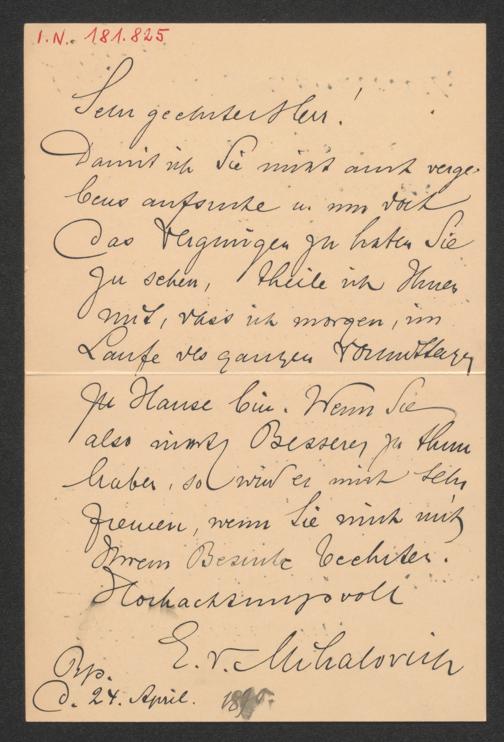 I.N. 181.825
Sehr geehrter Herr!
Damit ich Sie nicht auch verge-
bens aufsuche u. um doch
das Vergnügen zu haben Sie
zu sehen, theile ich Ihnen
mit, dass ich morgen, im
Laufe des ganzen Vormittages
zu Hause bin. Wenn Sie
also nichts Besseres zu thun
haben, so wird es mich sehr
freuen, wenn Sie mich mit
Ihrem Besuche beehrten.
Hochachtungsvoll
E. v. Mihalovich
Bp.
d. 24. April.